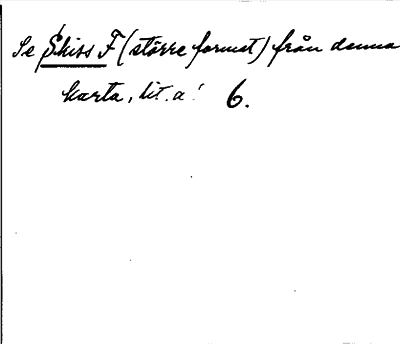 Se Skiss F (större format) från denna
karta, lit. a! 6.